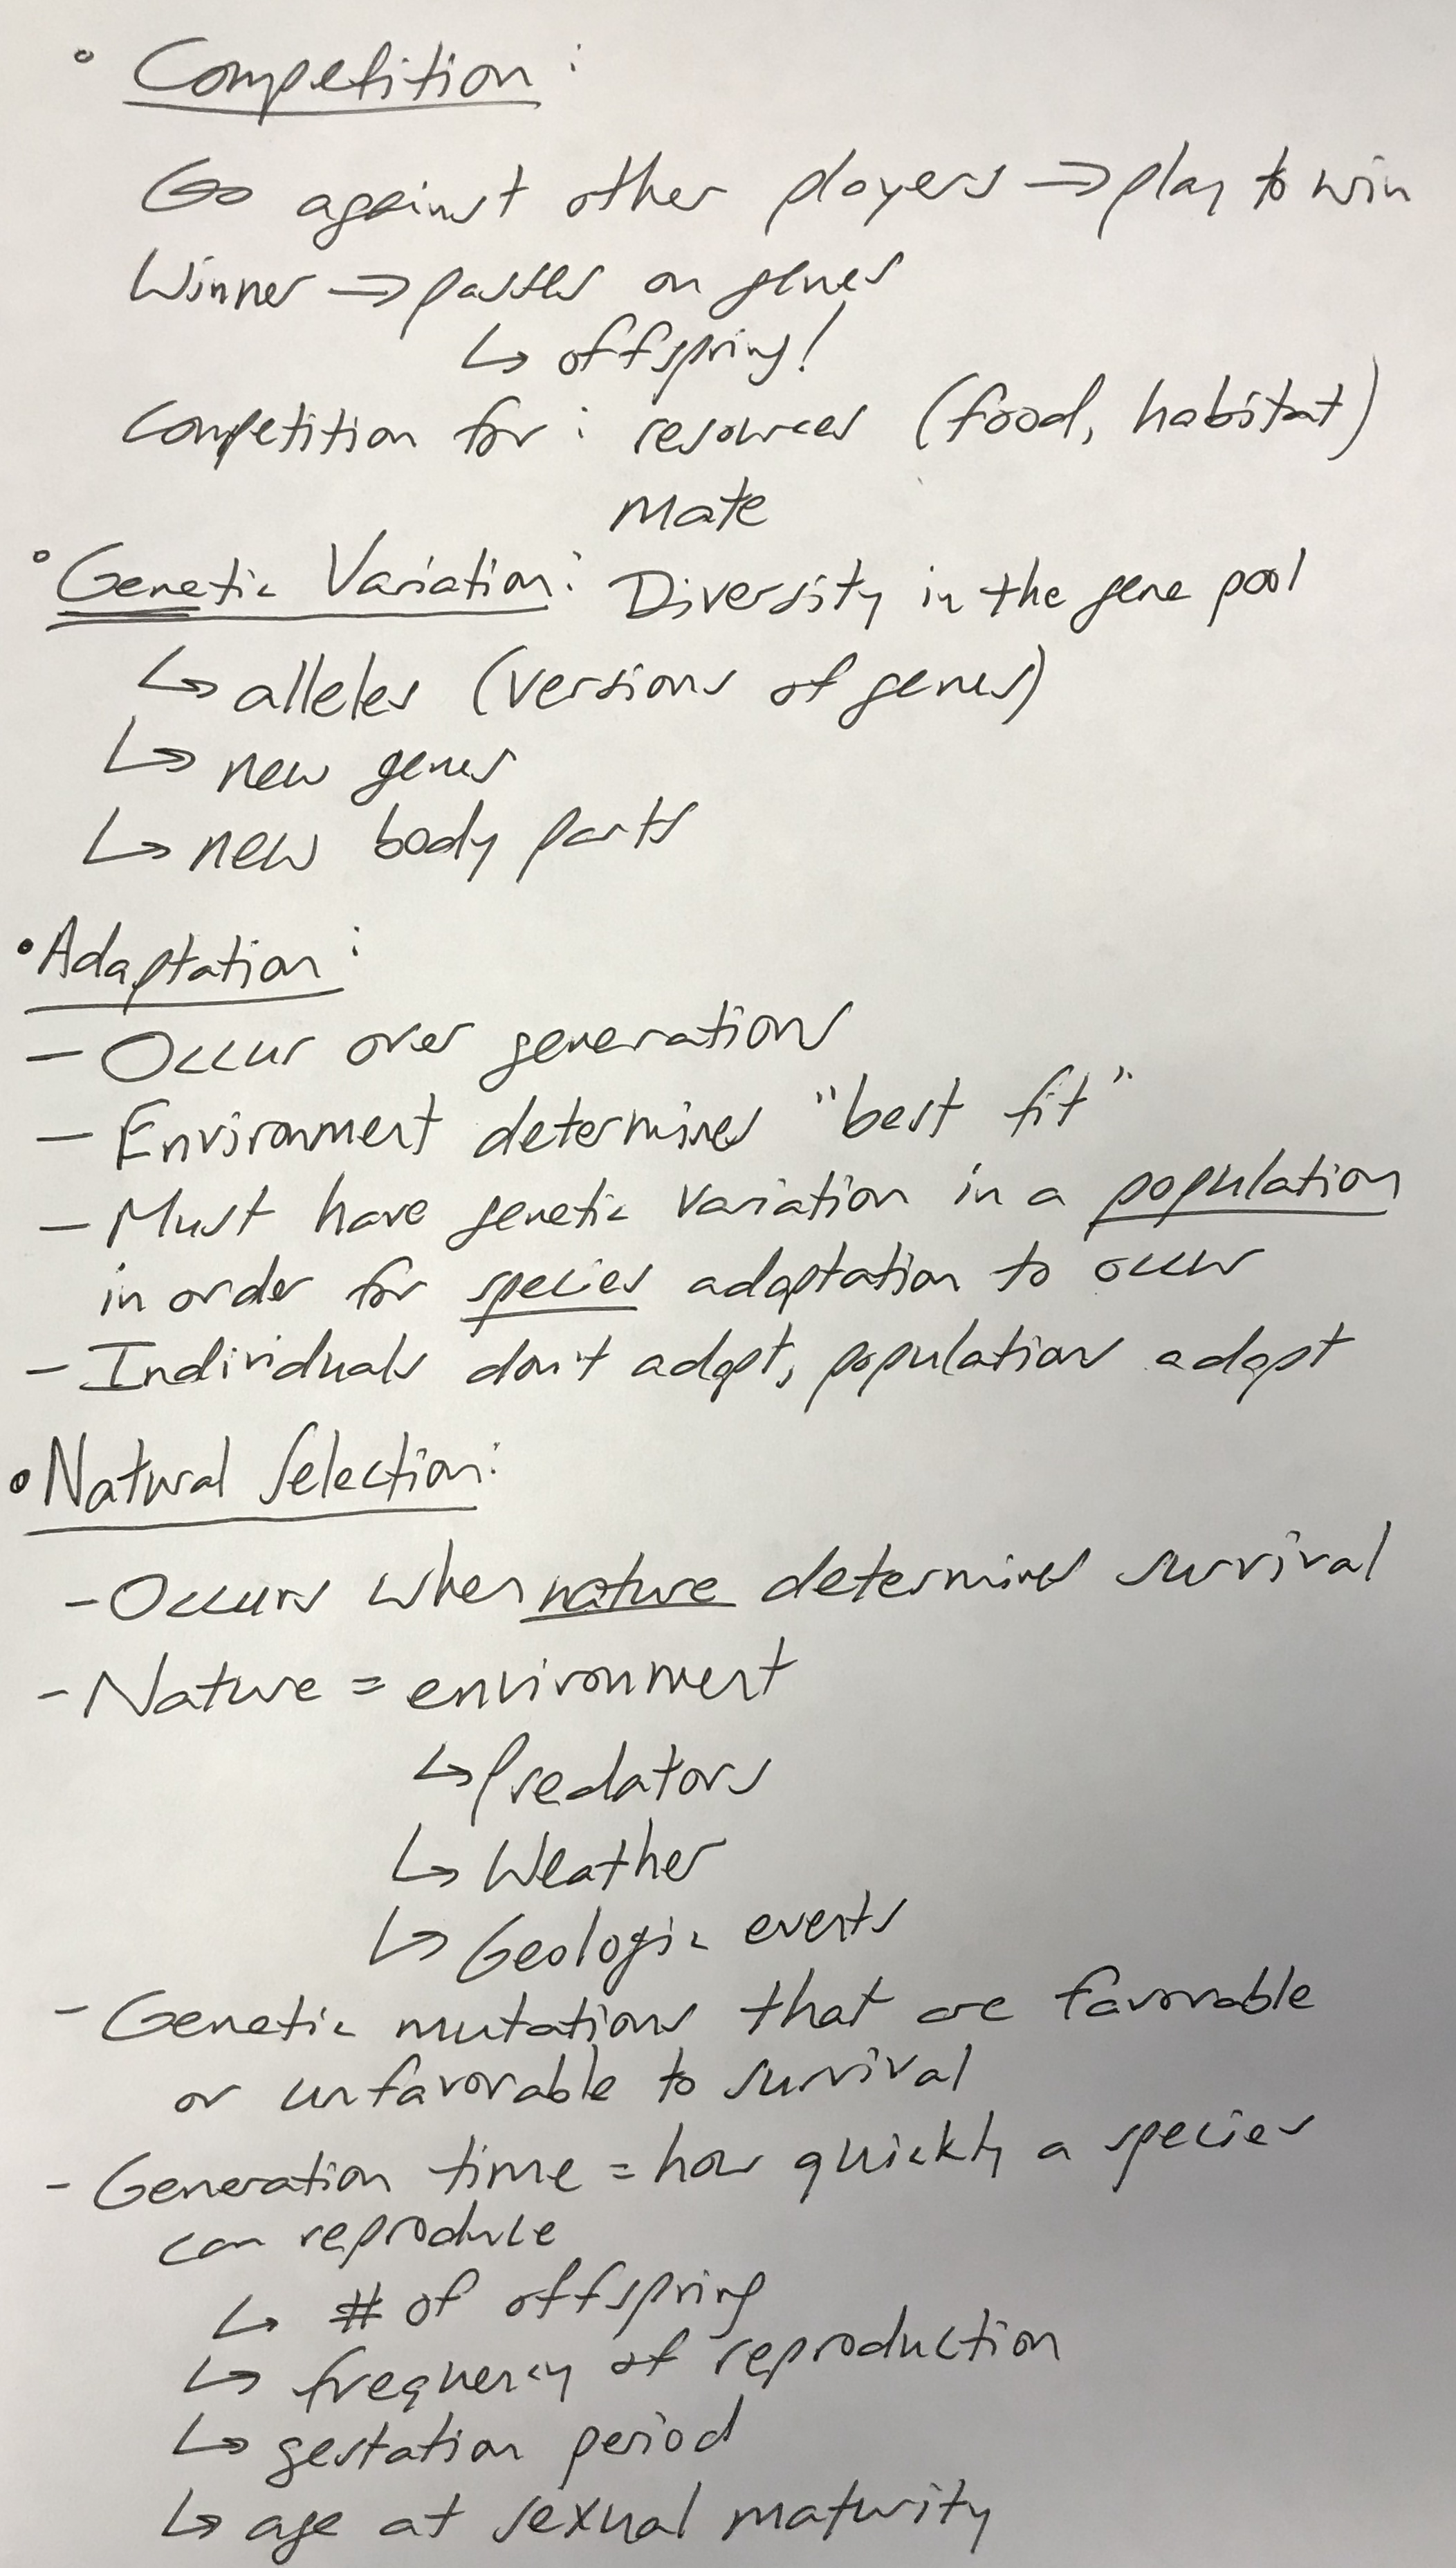 • Competition:
Go against other players ⇒ play to win
Winner ⇒ passes on genes
↳ offspring!
Competition for: resources (food, habitat)
mate
• Genetic Variation: Diversity in the gene pool
↳ alleles (versions of genes)
↳ new genes
↳ new body parts
• Adaptation:
— Occur over generations
— Environment determines "best fit"
— Must have genetic variation in a population
in order for species adaptation to occur
— Individuals don't adapt, populations adapt
• Natural Selection:
- Occurs when nature determines survival
- Nature = environment
↳ Predators
↳ Weather
↳ Geologic events
- Genetic mutations that are favorable
or unfavorable to survival
- Generation time = how quickly a species
can reproduce
↳ # of offspring
↳ frequency of reproduction
↳ gestation period
↳ age at sexual maturity